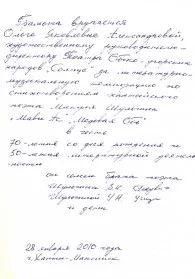 Грамота вручается
Ольге Яковлевне Александровой,
художественному руководителю-
директору Театра
народов „Солнце" за литературно-
музыкальную композицию по
стихотворениям хантыйского
поэта Микуля Шульгина
в честь
70-летия со дня рождения и
50-летия литературной деятель-
ности
от семьи поэта
Шульгина
Шульгиной
и дети
28 января 2010 года
г. Ханты-Мансийск